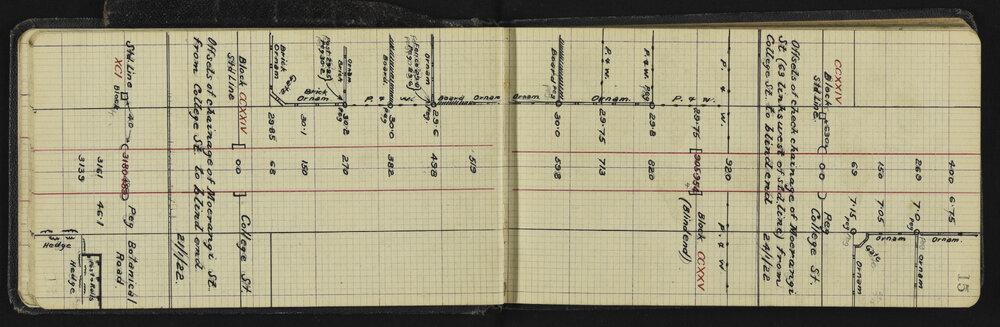 15
400 6.75
260 7.0 Peg
150 7.05
69 7.15 Peg
00 Peg College St.
Ornam.
Ornam
Ornam
Gate
CCXXIV
Block
Std Line
Offsets of check chainage of Moerangi
St. (63 links west of std line) from
College St. to blind end 24/1/22
P. & W.
P. & W.
920
Block CCXXV
(Blind end)
P. & W.
28.75
P. & W.
29.8 820
Peg
P. & W.
Ornam.
29.75 713
Board
Peg
30.0 598
Ornam
Board Ornam
519
Ornam
29.6 498
Peg
P. & W.
Board
30.0 382
Peg
Ornam
Brick
30.2 270
Peg
Brick
Ornam
30.1 150
Brick
Ornam
Gate
29.85 68
Block CCXXIV
Std Line
00
College St
Offsets of chainage of Moerangi St.
from College St. to blind end
21/1/22.
Std. Line
XCI Block
40
Peg Botanical
Road
3161 46.1
3139
Hedge
Post & Rails
Hedge